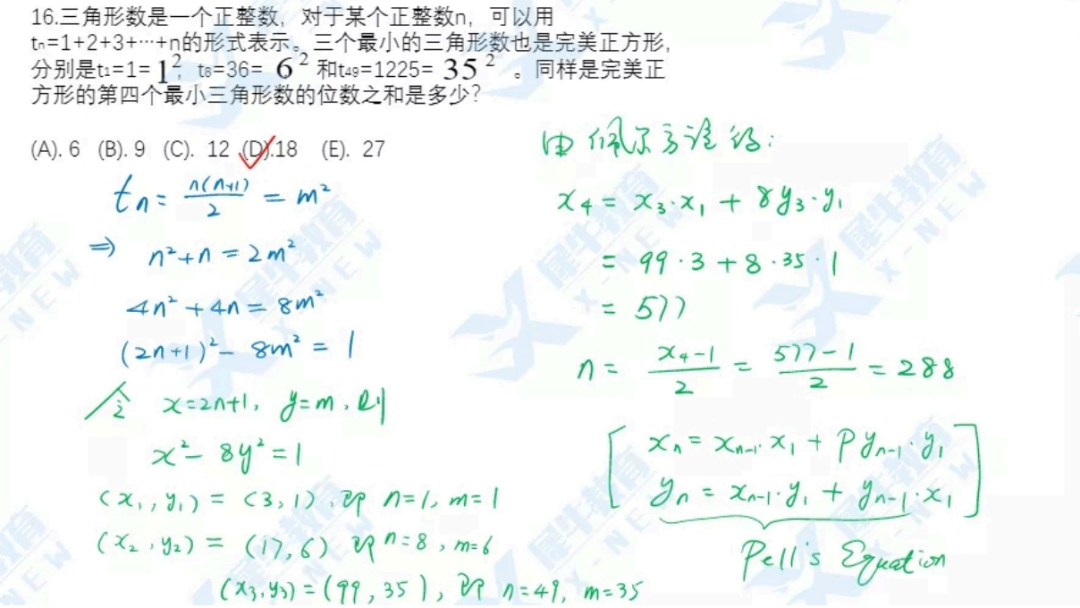 16.三角形数是一个正整数，对于某个正整数n，可以用
tn=1+2+3+…+n的形式表示。三个最小的三角形数也是完美正方形，
分别是t₁=1=1²，t₈=36=6²和t₄₉=1225=35²。同样是完美正
方形的第四个最小三角形数的位数之和是多少?
(A). 6 (B). 9 (C). 12 (D).18 (E). 27
tn = n(n+1)/2 = m²
⇒ n²+n = 2m²
4n²+4n = 8m²
(2n+1)² - 8m² = 1
令 x=2n+1, y=m, 则
x² - 8y² = 1
(x₁, y₁) = (3, 1), 即 n=1, m=1
(x₂, y₂) = (17, 6) 即 n=8, m=6
(x₃, y₃) = (99, 35), 即 n=49, m=35
由佩尔方程得:
x₄ = x₃·x₁ + 8y₃·y₁
= 99·3 + 8·35·1
= 577
n = (x₄-1)/2 = (577-1)/2 = 288
xₙ = xₙ₋₁·x₁ + Pyₙ₋₁·y₁
yₙ = xₙ₋₁·y₁ + yₙ₋₁·x₁
Pell's Equation
犀牛教育
X-NEW